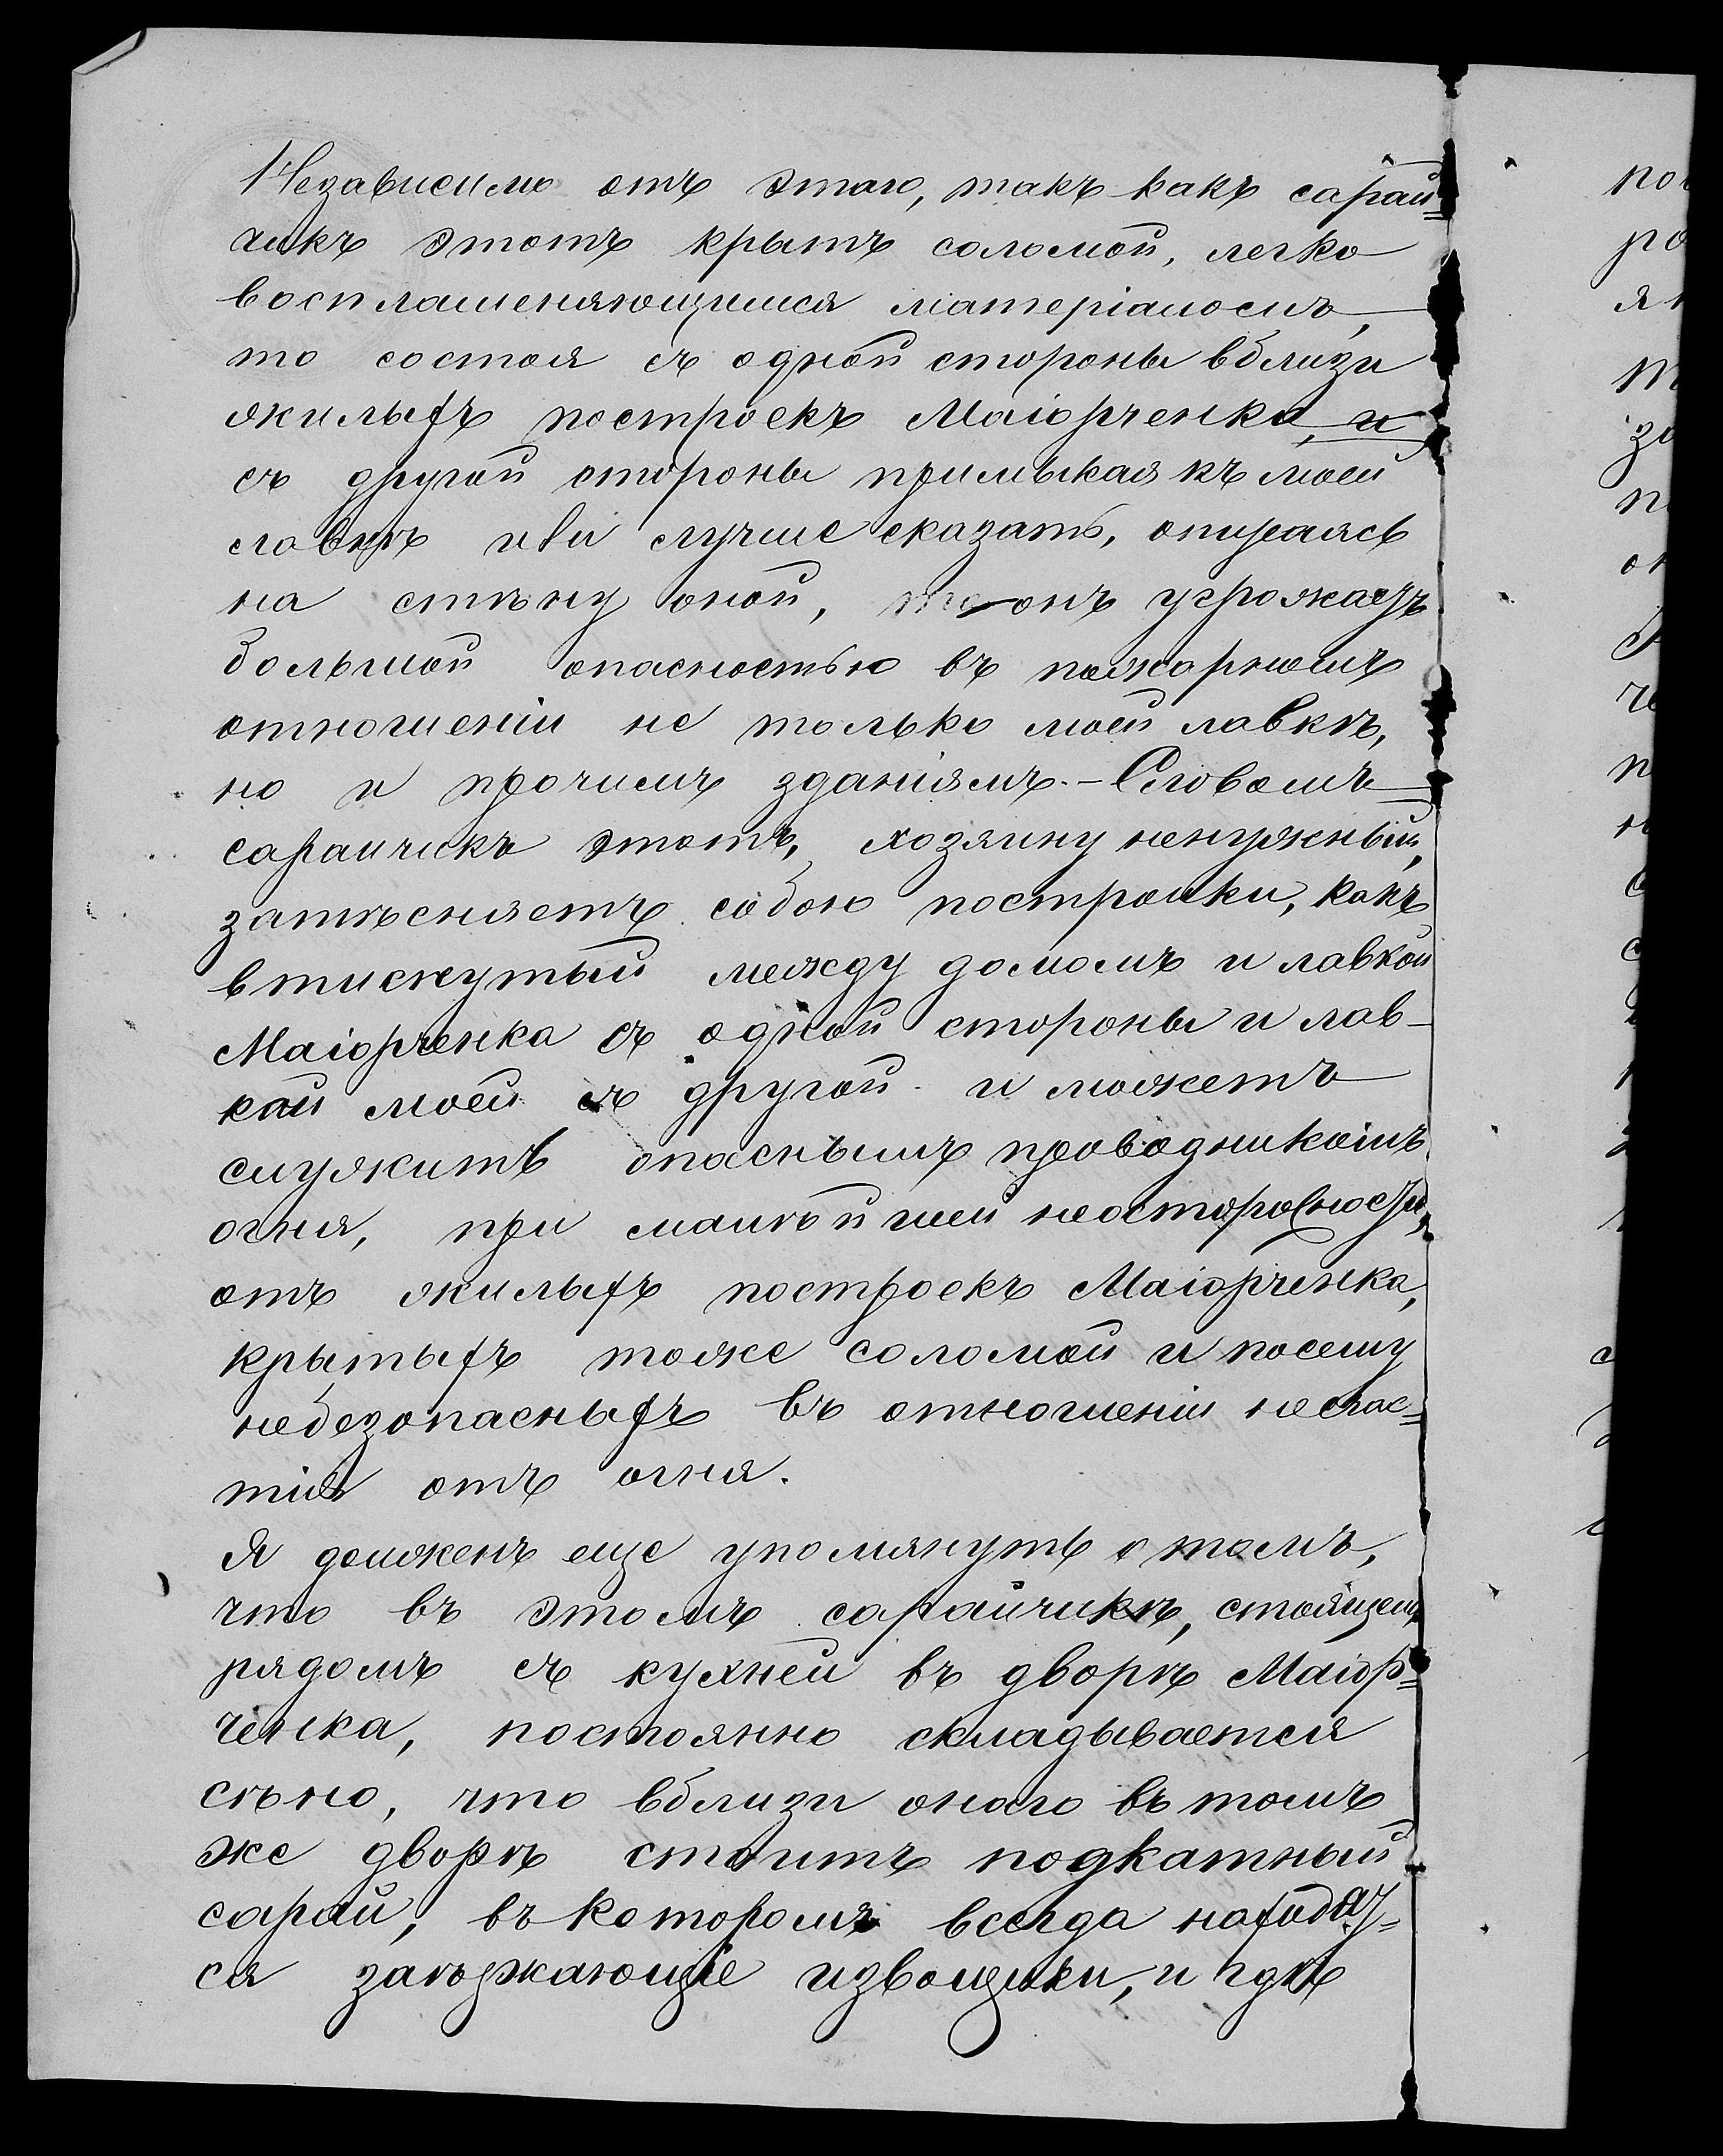 Независимо отъ этого, такъ какъ сарай=
чикъ этотъ крытъ соломой, легко
воспламеняющимся матеріаломъ,
то состоя съ одной стороны вблизи
жилыхъ построекъ Маіорченка, и
съ другой стороны примыкая къ моей
лавкѣ или лучше сказать, опираясь
на стѣну оной, то онъ угрожаетъ
большой опасностью въ пожарномъ
отношеніи не только моей лавкѣ,
но и прочимъ зданіямъ. – Словомъ
сарайчикъ этотъ, хозяину ненужный,
затѣсняетъ собою постройки, какъ
втиснутый между домомъ и лавкой
Маіорченка съ одной стороны и лав-
кой моей съ другой и можетъ
служить опаснымъ проводникомъ
огня, при малѣйшей неосторожности,
отъ жилыхъ построекъ Маіорченка,
крытыхъ тоже соломой и посему
небезопасныхъ въ отношеніи несчас=
тія отъ огня.
Я долженъ еще упомянуть о томъ,
что въ этомъ сарайчикѣ, стоящемъ
рядомъ съ кухней въ дворѣ Маіор=
ченка, постоянно складывается
сѣно, что вблизи онаго въ томъ
же дворѣ стоитъ подкатный
сарай, въ которомъ всегда находят=
ся заѣзжающіе извощики, и гдѣ